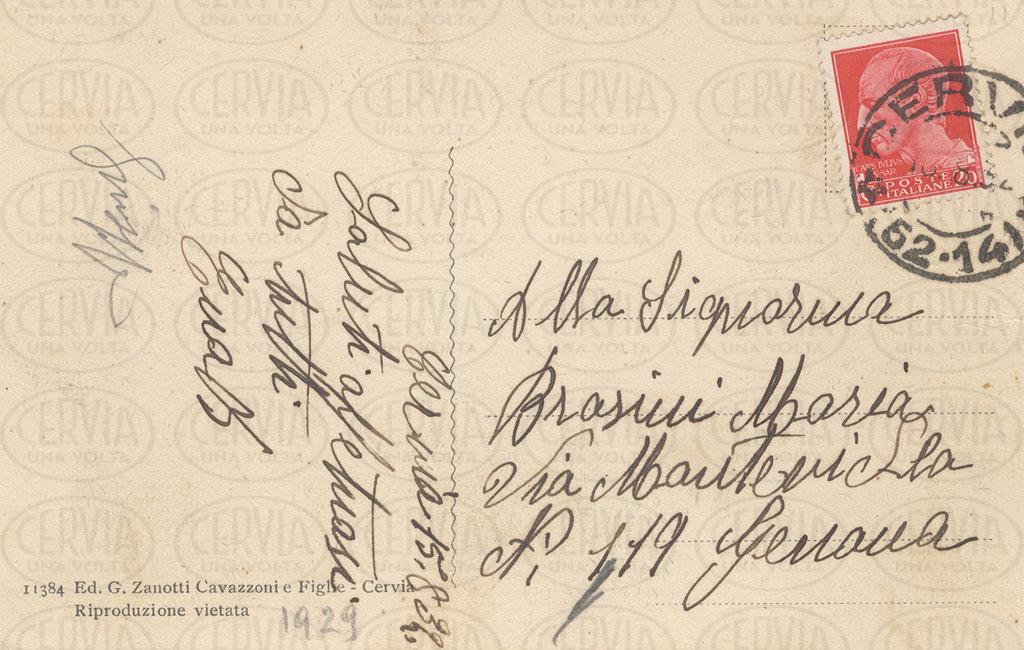 Cervia 15-8-32
Saluti affettuosi
da tutti
Alla Signorina
Brasini Maria
Via
N. 119 Genova
CERVIA
(62-14)
CAIVS IVLIVS
CAESAR
POSTE
ITALIANE 20
11384 Ed. G. Zanotti Cavazzoni e Figlie - Cervia
Riproduzione vietata
1929
CERVIA
UNA VOLTA